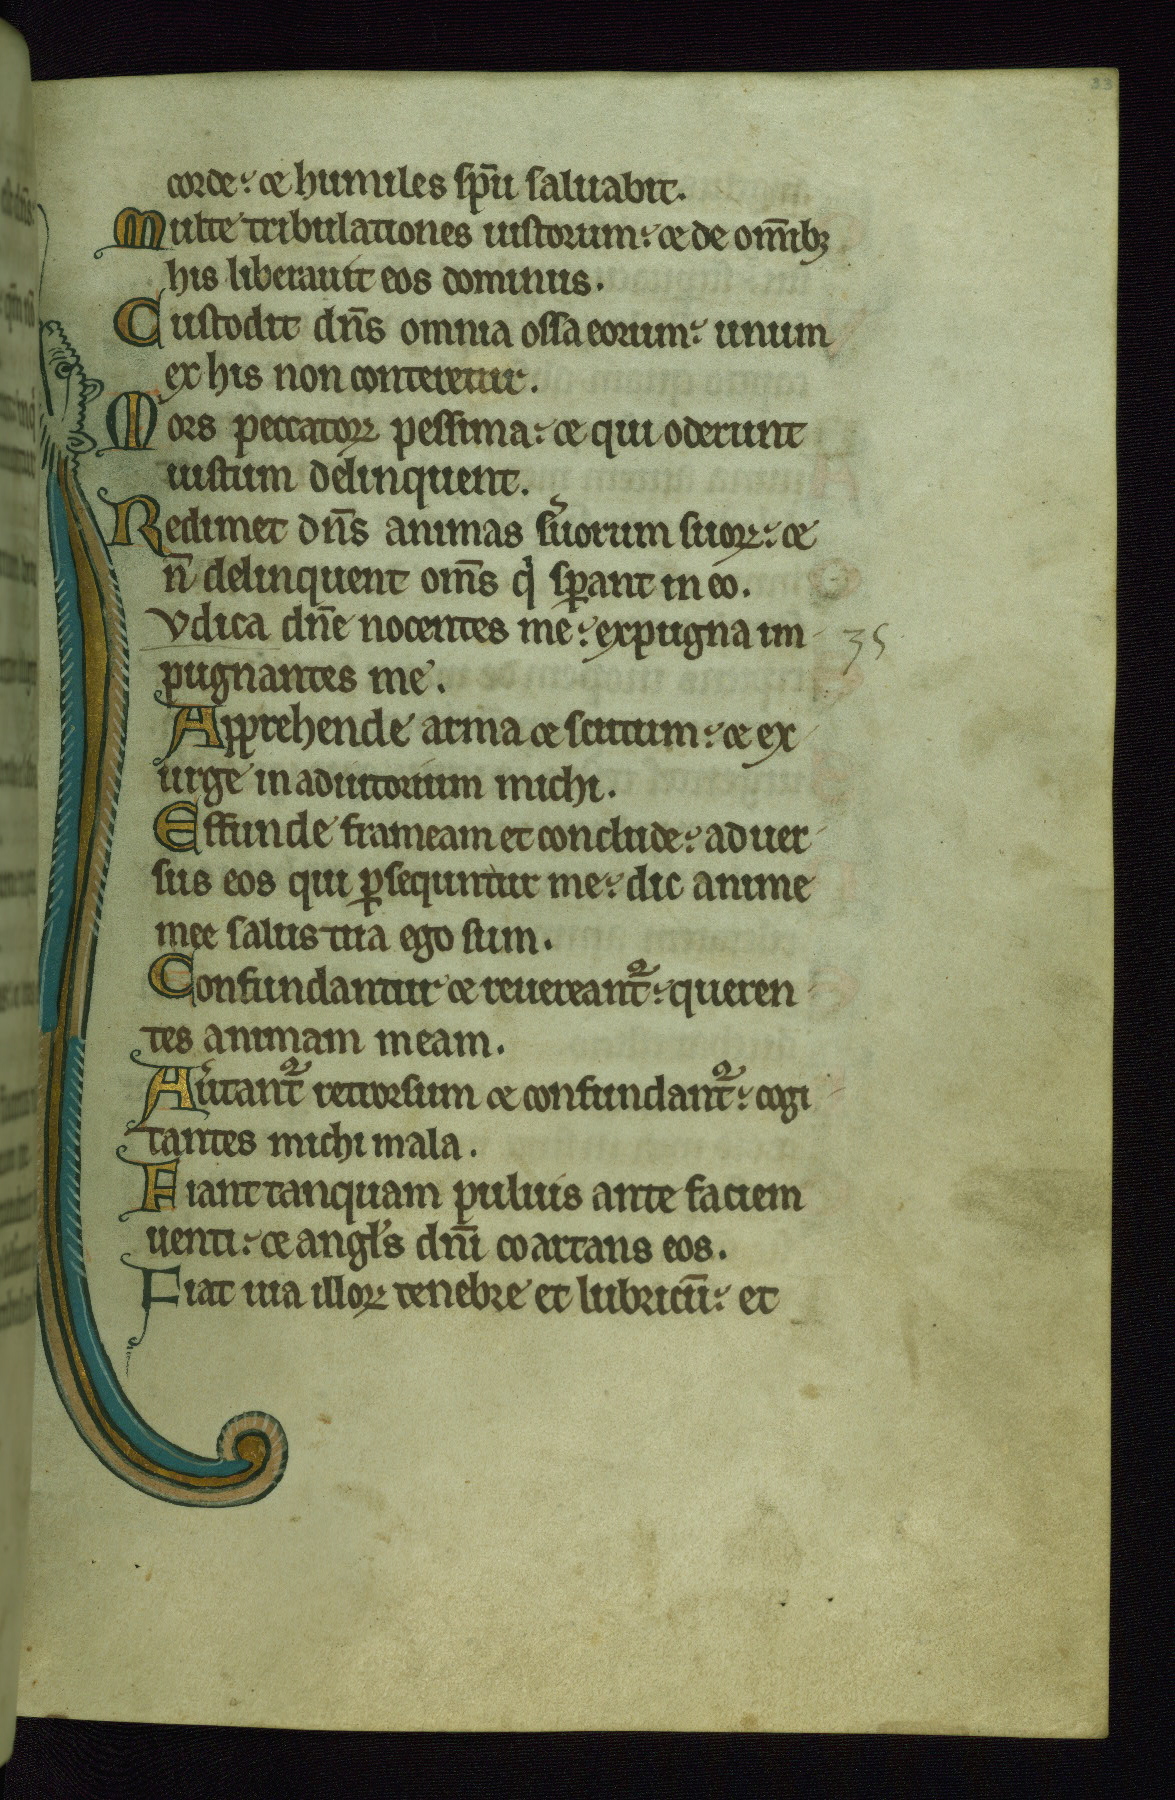 33
corde: et humiles sp̄u saluabit.
Multe tribulationes iustorum: et de om̄ibꝫ
his liberauit eos dominus.
Custodit dn̄s omnia ossa eorum: unum
ex his non conteretur.
Mors peccatoꝝ pessima: et qui oderunt
iustum delinquent.
Redimet dn̄s animas s̓uorum suoꝝ: et
n̄ delinquent om̄s qͥ sꝑant in eo.
Vdica dn̄e nocentes me: expugna im
pugnantes me.
35
Apprehende arma et scutum: et ex
urge in adiutorium michi.
Effunde frameam et conclude: aduer
sus eos qui ꝑsequntur me: dic anime
mee salus tua ego sum.
Confundantur et reuereant᷑: queren
tes animam meam.
Au̓tant᷑ retrorsum et confundant᷑: cogi
tantes michi mala.
Fiant tanquam puluis ante faciem
uenti: et angl̓s dn̄i coartans eos.
Fiat uia illoꝝ tenebre et lubricū: et